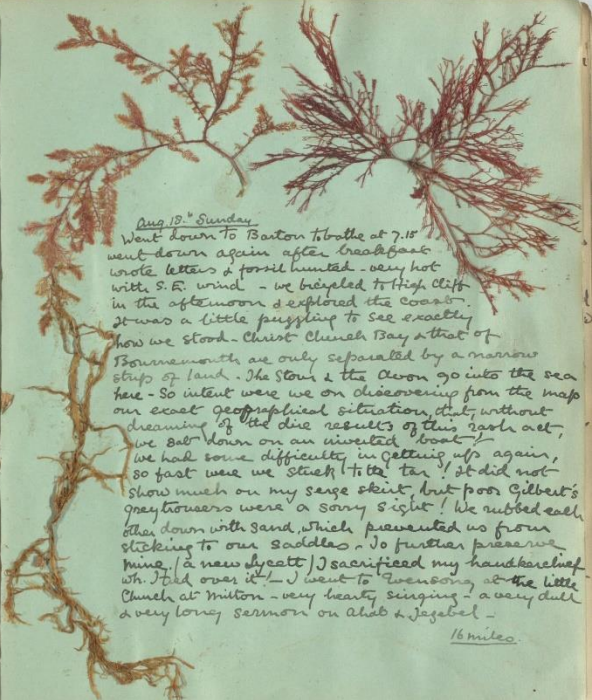 Aug 18th Sunday
Went down to Barton to bathe at 7.15
went down again after breakfast
wrote letters & fossil hunted - very hot
with S.E. wind - we bicycled to High Cliff
in the afternoon & explored the coast.
It was a little puzzling to see exactly
how we stood - Christ Church Bay & that of
Bournemouth are only separated by a narrow
strip of land - The Stour & the Avon go into the sea
here - So intent were we on discovering from the map
our exact geographical situation, that, without
dreaming of the dire results of this rash act,
we sat down on an inverted boat!
we had some difficulty in getting up again,
so fast were we stuck to the tar! It did not
show much on my serge skirt, but poor Gilbert's
grey trousers were a sorry sight! We rubbed each
other down with sand, which prevented us from
sticking to our saddles - To further preserve
mine, (a new Lycett) I sacrificed my handkerchief
wh. I tied over it! - I went to Evensong at the little
Church at Milton - very hearty singing - a very dull
& very long sermon on Ahab & Jezebel -
16 miles.